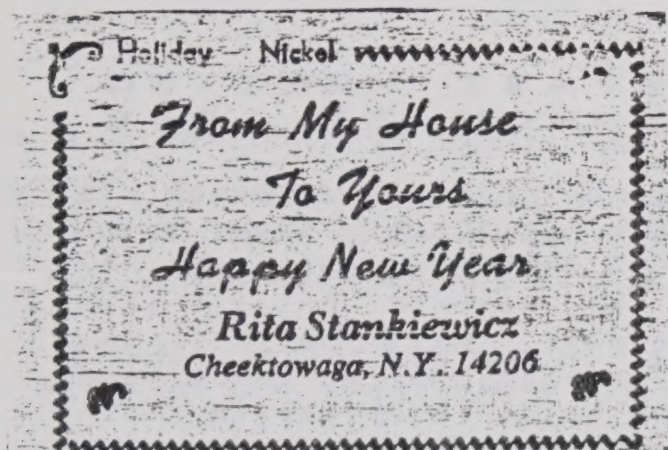 Holiday Nickel
From My House
To Yours
Happy New Year
Rita Stankiewicz
Cheektowaga, N.Y. 14206